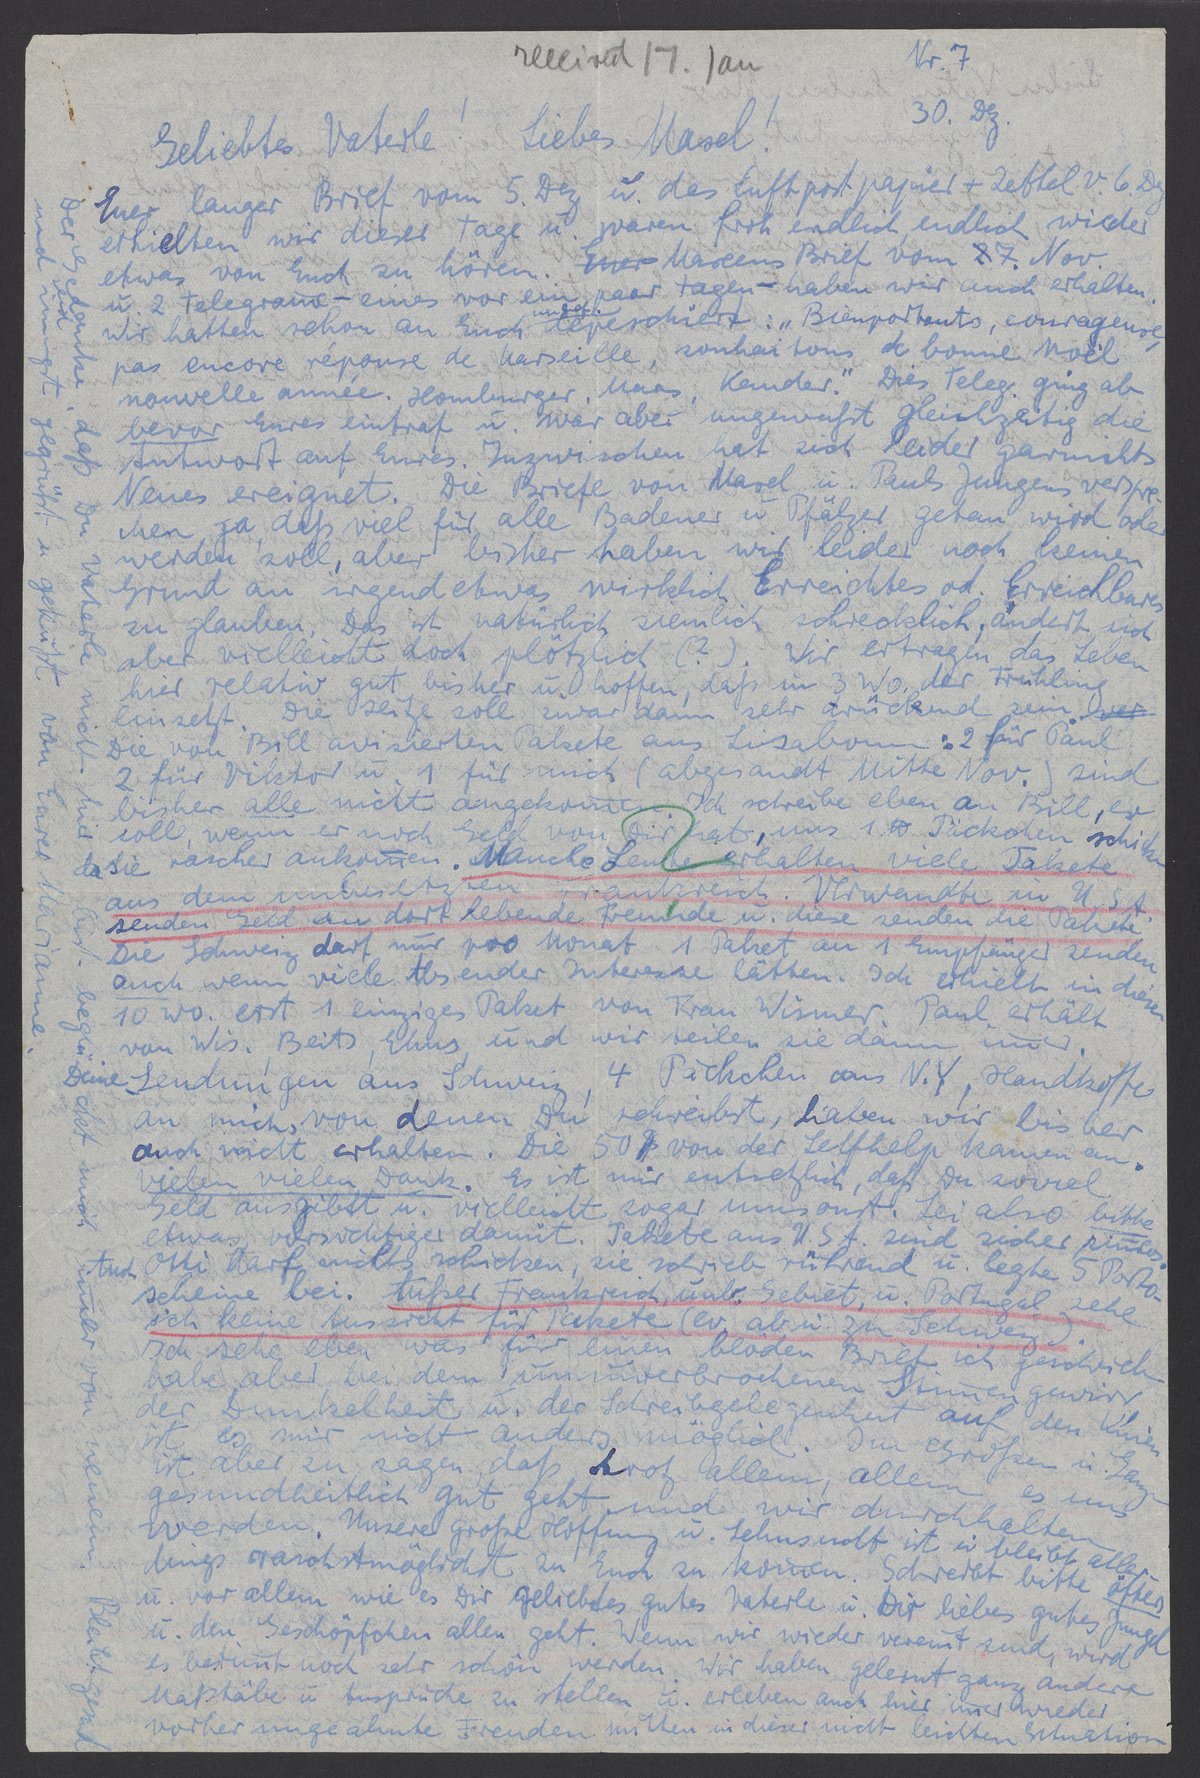 received 17. Jan
Nr. 7
30. Dez.
Geliebtes Vaterle! Liebes Masel!
Euer langer Brief vom 5. Dez u. das Luftpostpapier + Zettel v. 6. Dez
erhielten wir dieser Tage u. waren froh endlich, endlich wieder
etwas von Euch zu hören. Euer Maxens Brief vom 27. Nov.
u. 2 Telegrame - eines vor ein paar Tagen - haben wir auch erhalten.
Wir hatten schon an Euch depeschiert: „Bienportants, courageuse,
pas encore réponse de Marseille, souhaitons bonne Noël
nouvelle année. Homburger, Maas, Kander." Dies Teleg. ging ab
bevor Eures eintraf u. war aber ungewußt gleichzeitig die
Antwort auf Eures. Inzwischen hat sich leider garnichts
Neues ereignet. Die Briefe von Masel u. Pauls Jungens verspre-
chen ja, daß viel für alle Badener u. Pfälzer getan wird oder
werden soll, aber bisher haben wir leider noch keinen
Grund an irgendetwas wirklich Erreichtes od. Erreichbares
zu glauben. Das ist natürlich ziemlich schrecklich, ändert sich
aber vielleicht doch plötzlich (?). Wir ertragen das Leben
hier relativ gut bisher u. hoffen, daß in 3 Wo. der Frühling
einsetzt. Die Hitze soll zwar dann sehr drückend sein.
Die von Bill avisierten Pakete aus Lissabonn: 2 für Paul
2 für Viktor u. 1 für mich (abgesandt Mitte Nov.) sind
bisher alle nicht angekommen. Ich schreibe eben an Bill, er
soll, wenn er noch Geld von Dir hat, uns 1 Päckchen schicken
da sie rascher ankommen. Manche Leute erhalten viele Pakete
aus dem unbesetzten Frankreich. Verwandte in U.S.A.
senden Geld an dort lebende Freunde u. diese senden die Pakete.
Die Schweiz darf nur pro Monat 1 Paket an 1 Empfänger senden
auch wenn viele Absender Interesse hätten. Ich erhielt in diesen
10 Wo. erst 1 einziges Paket von Frau Wismer. Paul erhält
von Wis., Beits, Ehns, und wir teilen sie dann immer.
Deine Sendungen aus Schweiz, 4 Päckchen aus N.Y., Handkoffer
an mich, von denen Du schreibst, haben wir bisher
auch nicht erhalten. Die 50 $ von der Selfhelp kamen an.
vielen vielen Dank. Es ist mir entsetzlich, daß Du soviel
Geld ausgibst u. vielleicht sogar umsonst. Sei also bitte
etwas vorsichtiger damit. Pakete aus U.S.A. sind sicher sinnlos.
Auch Otti darf nichts schicken, sie schrieb rührend u. legte 5 Porto-
scheine bei. Außer Frankreich, unb. Gebiet, u. Portugal sehe
ich keine Aussicht für Pakete (ev. ab u. zu Schweiz).
Ich sehe eben was für einen blöden Brief ich geschrieben
habe, aber bei dem ununterbrochenen Stimmengewirr
der Dunkelheit u. der Schreibgelegenheit auf den Knien
ist es mir nicht anders möglich. Im Großen u. Ganzen
ist aber zu sagen, daß trotz allem, allem es uns
gesundheitlich gut geht und wir durchhalten
werden. Unsere große Hoffnung u. Sehnsucht ist u. bleibt aller-
dings raschstmöglichst zu Euch zu kommen. Schreibt bitte öfters
u. vor allem wie es Dir geliebtes gutes Vaterle u. Dir liebes gutes Jungel
u. den Geschöpfchen allen geht. Wenn wir wieder vereint sind, wird
es bestimmt noch sehr schön werden. Wir haben gelernt ganz andere
Maßstäbe u. Ansprüche zu stellen u. erleben auch hier immer wieder
vorher ungeahnte Freuden mitten in dieser nicht leichten Situation
Der Gedanke, daß Du Vaterle nicht hier bist beglückt mich immer von neuem. Bleibt gesund
und innigst gegrüßt u. geküßt von Eurer Marianne.